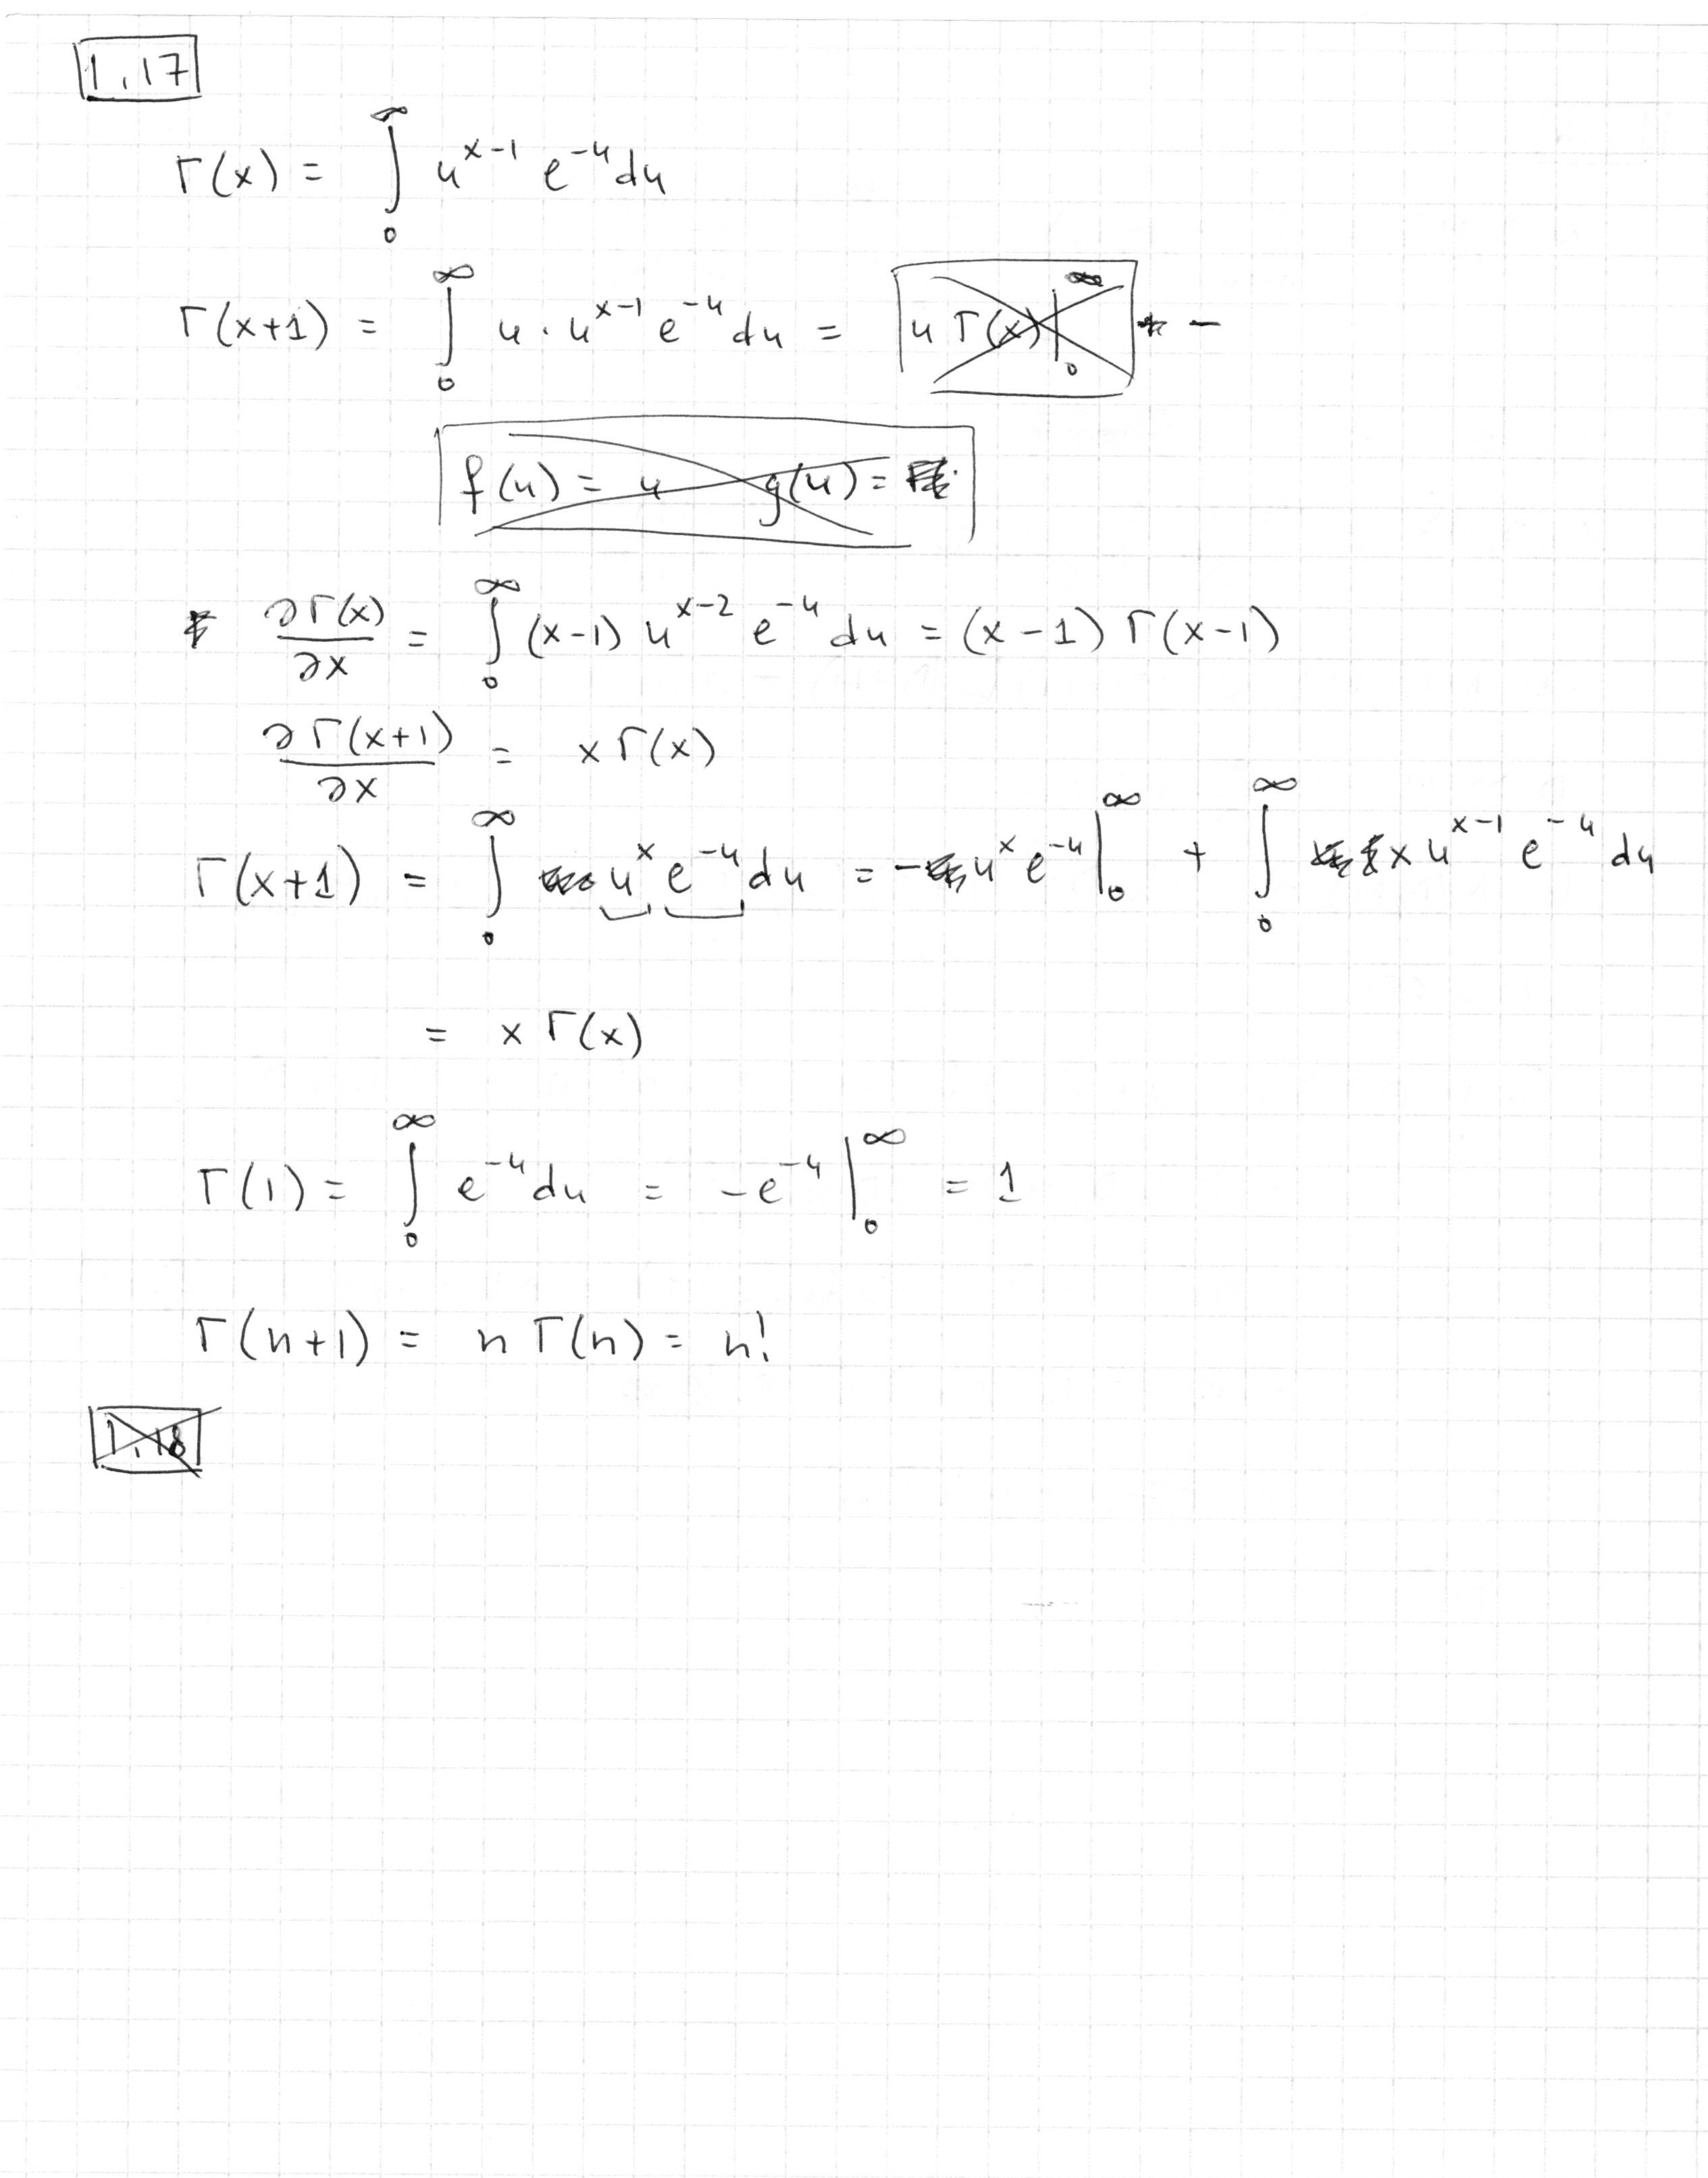 1.17
Γ(x) = ∫₀^∞ u^{x-1} e^{-u} du
Γ(x+1) = ∫₀^∞ u · u^{x-1} e^{-u} du = u Γ(x) |₀^∞ -
f(u) = u g(u) =
∂Γ(x)/∂x = ∫₀^∞ (x-1) u^{x-2} e^{-u} du = (x-1) Γ(x-1)
∂Γ(x+1)/∂x = x Γ(x)
Γ(x+1) = ∫₀^∞ u^x e^{-u} du = - u^x e^{-u} |₀^∞ + ∫₀^∞ x u^{x-1} e^{-u} du
= x Γ(x)
Γ(1) = ∫₀^∞ e^{-u} du = -e^{-u} |₀^∞ = 1
Γ(n+1) = n Γ(n) = n!
1.18